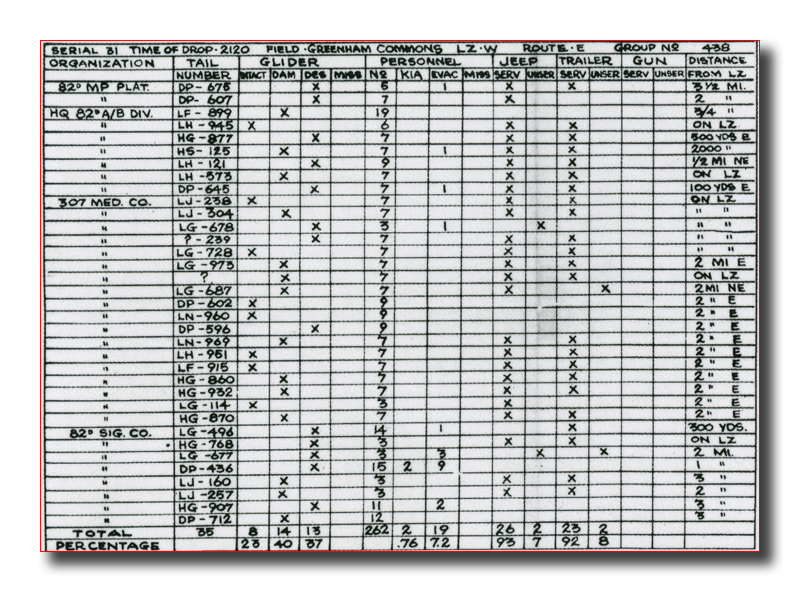 SERIAL 31 TIME OF DROP · 2120 FIELD · GREENHAM COMMONS LZ · W ROUTE · E GROUP Nº 438
ORGANIZATION TAIL GLIDER PERSONNEL JEEP TRAILER GUN DISTANCE
NUMBER INTACT DAM DES MISS Nº KIA EVAC MISS SERV UNSER SERV UNSER SERV UNSER FROM LZ
82ᴰ MP PLAT. DP - 675 X 5 1 X X 3 1/2 MI.
" DP - 607 X 7 X 2 "
HQ 82ᴰ A/B DIV. LF - 899 X 19 3/4 "
" LH - 945 X 6 X X ON LZ
" HG - 877 X 7 X X 500 YDS E
" HS - 125 X 7 1 X X 2000 "
" LH - 121 X 9 X X 1/2 MI NE
" LH - 573 X 7 X X ON LZ
" DP - 645 X 7 1 X X 100 YDS E
307 MED. CO. LJ - 238 X 7 X X ON LZ
" LJ - 304 X 7 X X " "
" LG - 678 X 3 1 X " "
" ? - 239 X 7 X X " "
" LG - 728 X 7 X X " "
" LG - 973 X 7 X X 2 MI E
" ? X 7 X X ON LZ
" LG - 687 X 7 X X 2 MI NE
" DP - 602 X 9 2 " E
" LN - 960 X 9 2 " E
" DP - 596 X 9 2 " E
" LN - 969 X 7 X X 2 " E
" LH - 951 X 7 X X 2 " E
" LF - 915 X 7 X X 2 " E
" HG - 860 X 7 X X 2 " E
" HG - 932 X 7 X X 2 " E
" LG - 114 X 3 X 2 " E
" HG - 870 X 7 X X 2 " E
82ᴰ SIG. CO. LG - 496 X 14 1 X 300 YDS.
" HG - 768 X 3 X X ON LZ
" LG - 677 X 3 3 X X 2 MI.
" DP - 436 X 15 2 9 1 "
" LJ - 160 X 3 X X 3 "
" LJ - 257 X 3 X X 2 "
" HG - 907 X 11 2 3 "
" DP - 712 X 12 3 "
TOTAL 35 8 14 13 262 2 19 26 2 23 2
PERCENTAGE 23 40 37 .76 7.2 93 7 92 8